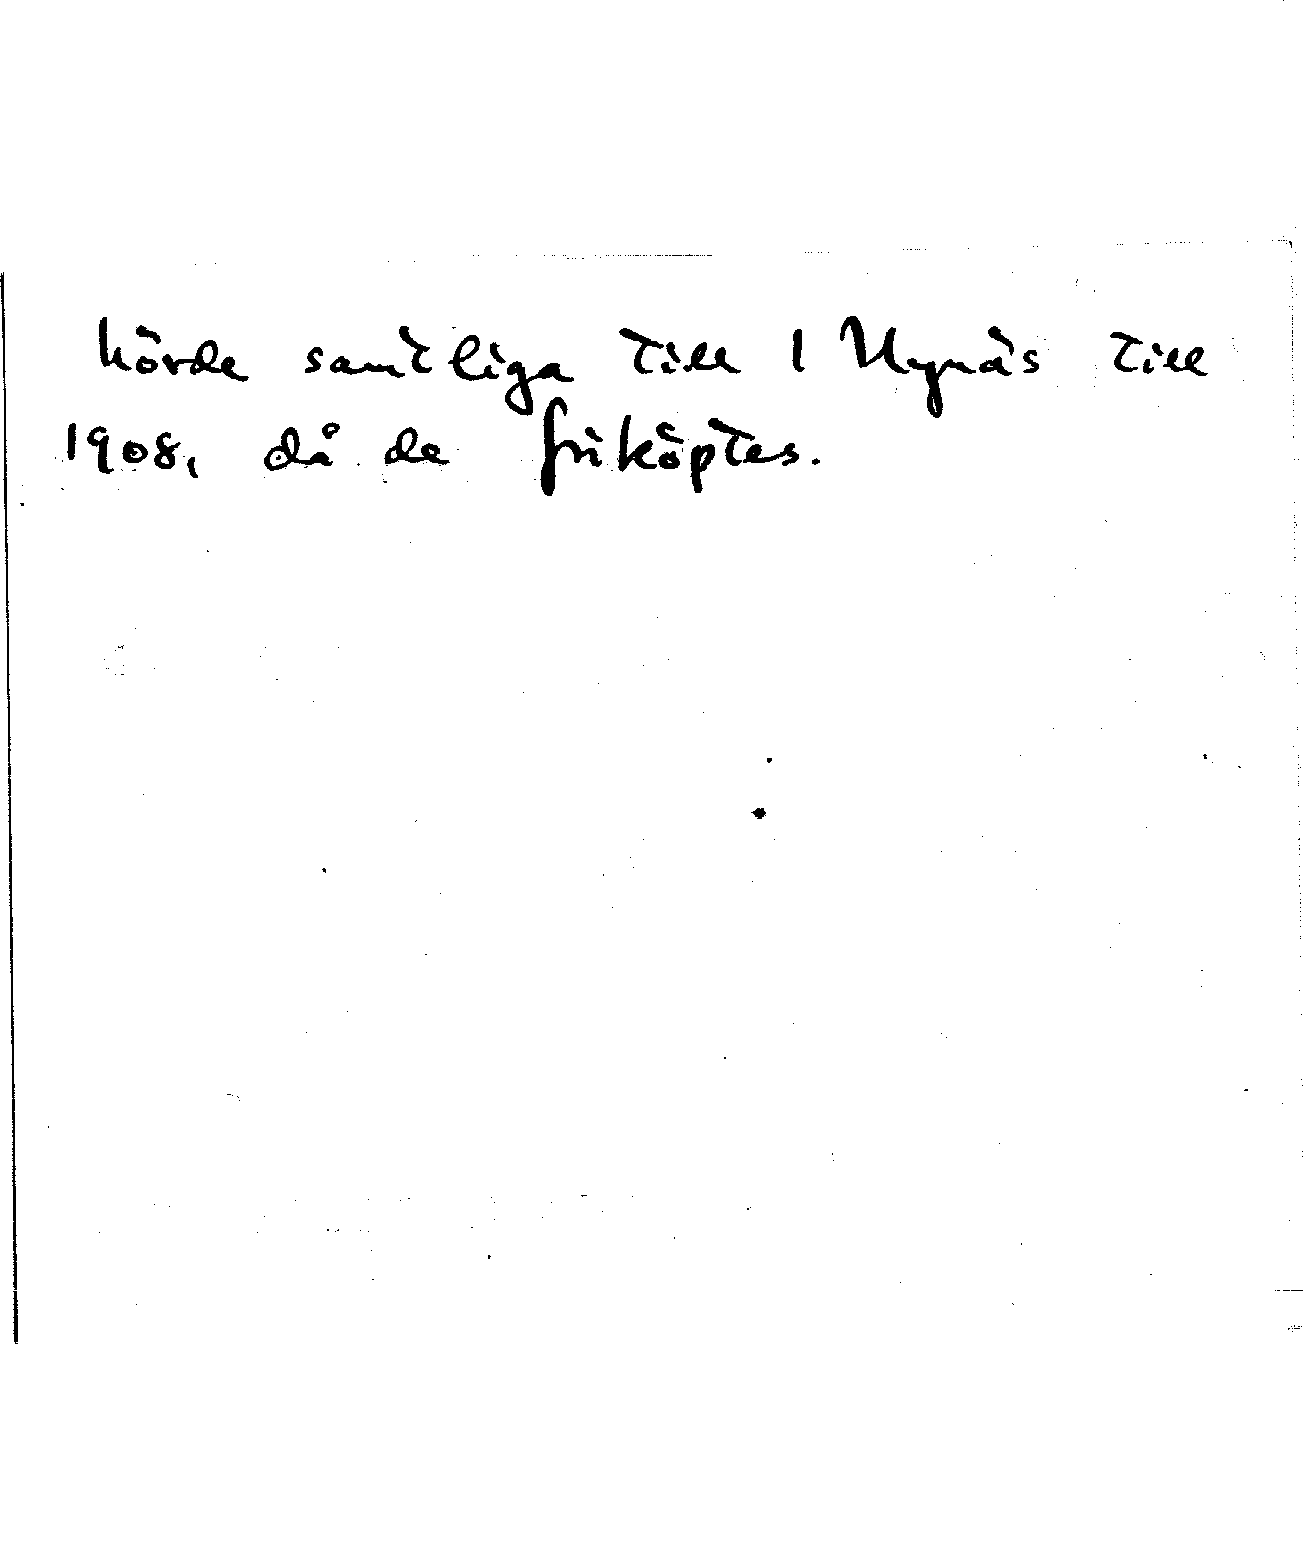 hörde samtliga till 1 Nynäs till
1908, då de friköptes.